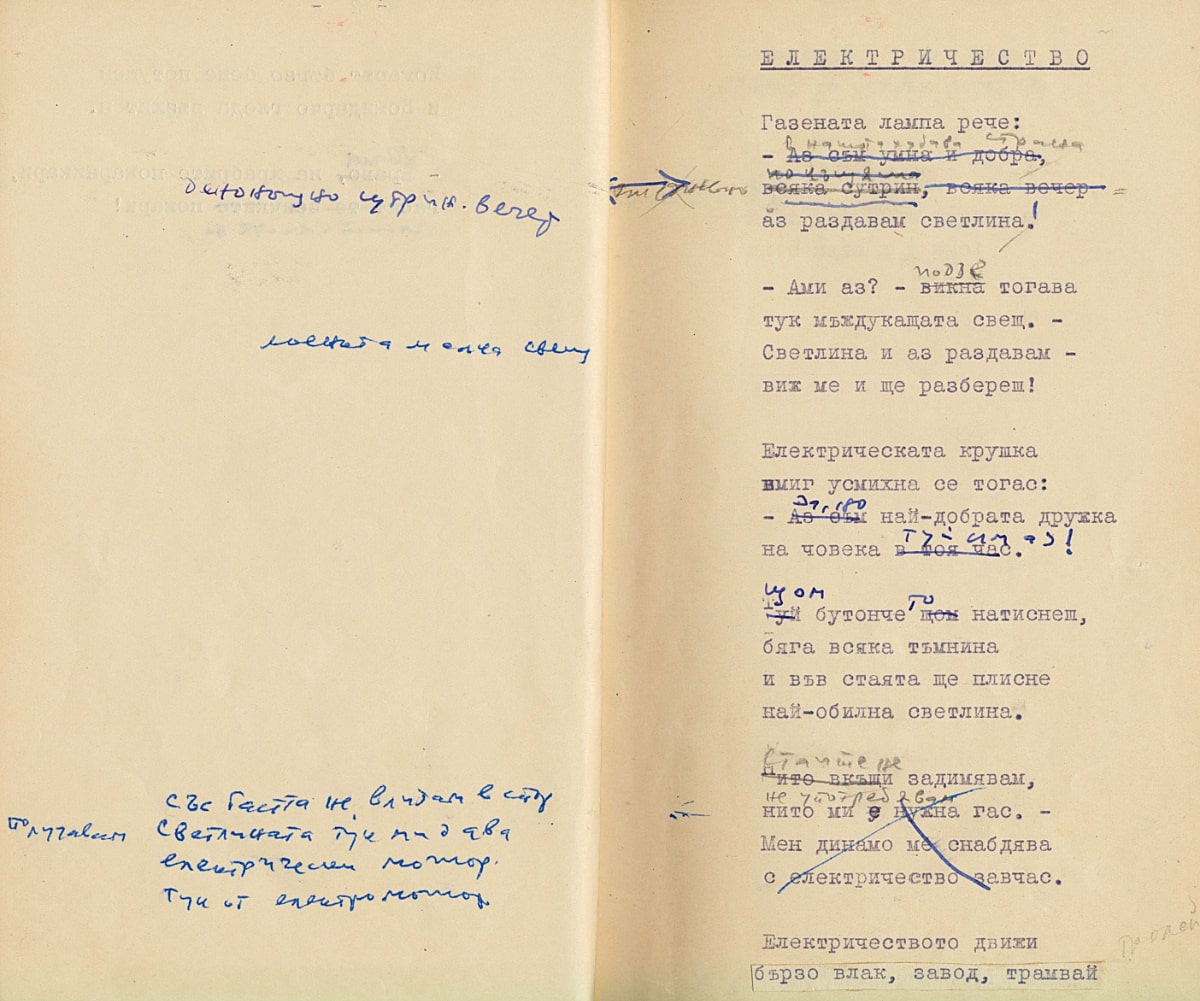 денонощно сутрин. вечер
лоената малка свещ
със гастта не влизам в спор
получавам светлината тук ми дава
електрически мотор.
тук от електромотор
ЕЛЕКТРИЧЕСТВО
Газената лампа рече:
в нашата хубава страна
- Аз съм умна и добра,
всяка сутрин, всяка вечер
аз раздавам светлина!
подзе
- Ами аз? - викна тогава
тук мъждукащата свещ. -
Светлина и аз раздавам -
виж ме и ще разбереш!
Електрическата крушка
вмиг усмихна се тогас:
- Аз съм най-добрата дружка
туй съм аз!
на човека в тоя час.
Щом то
Туй бутонче щом натиснеш,
бяга всяка тъмнина
и във стаята ще плисне
най-обилна светлина.
Стаите не
Нито вкъщи задимявам,
не употребявам
нито ми е нужна гас. -
Мен динамо ме снабдява
с електричество завчас.
Електричеството движи
бързо влак, завод, трамвай